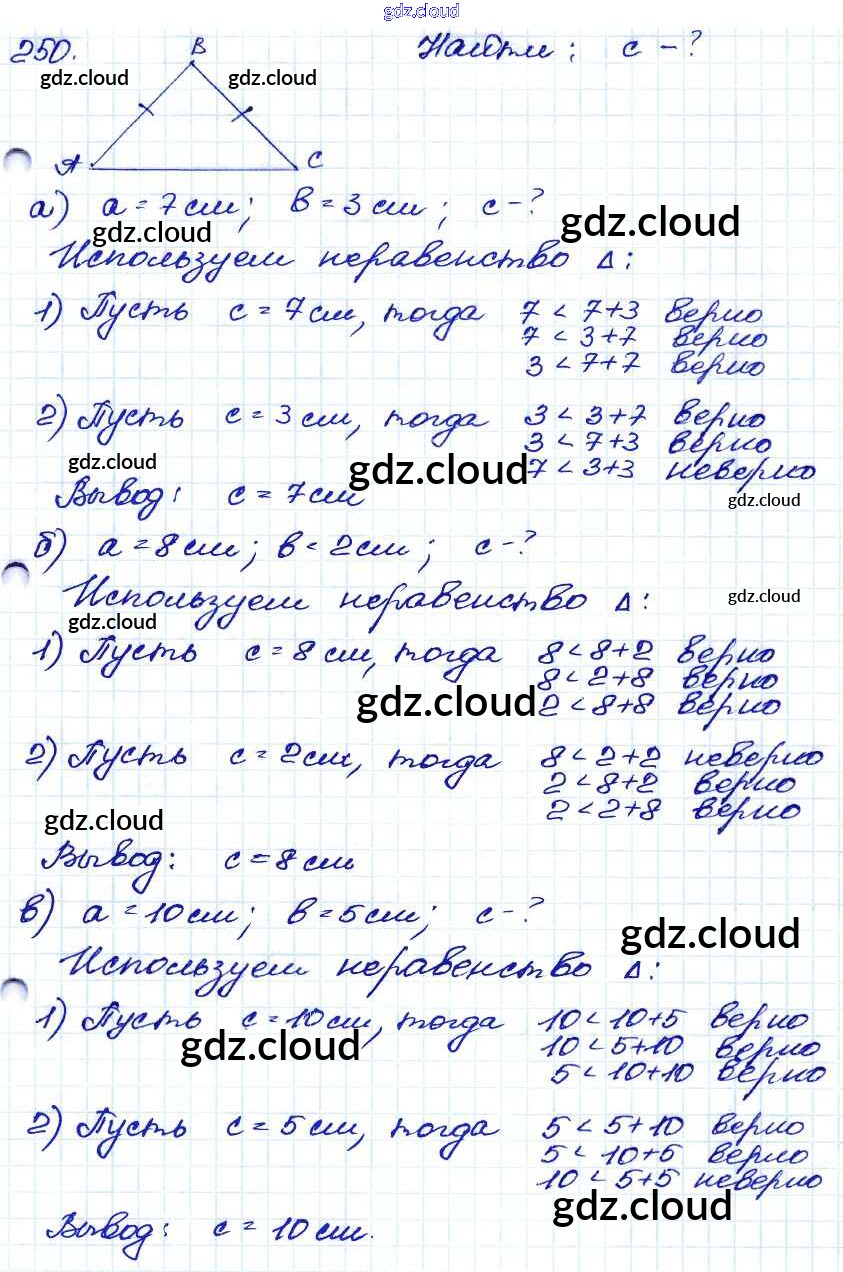 gdz.cloud
250. Найти: c - ?
B
gdz.cloud gdz.cloud
A C
а) a = 7 см; b = 3 см; c - ?
gdz.cloud gdz.cloud
Используем неравенство Δ:
1) Пусть c = 7 см, тогда 7 < 7+3 верно
7 < 3+7 верно
3 < 7+7 верно
2) Пусть c = 3 см, тогда 3 < 3+7 верно
3 < 7+3 верно
gdz.cloud gdz.cloud 7 < 3+3 неверно
Вывод: c = 7 см gdz.cloud
б) a = 8 см; b < 2 см; c - ?
Используем неравенство Δ: gdz.cloud
gdz.cloud
1) Пусть c = 8 см, тогда 8 < 8+2 верно
8 < 2+8 верно
gdz.cloud 2 < 8+8 верно
2) Пусть c = 2 см, тогда 8 < 2+2 неверно
2 < 8+2 верно
2 < 2+8 верно
gdz.cloud
Вывод: c = 8 см
в) a = 10 см; b = 5 см; c - ?
gdz.cloud
Используем неравенство Δ:
1) Пусть c = 10 см, тогда 10 < 10+5 верно
gdz.cloud 10 < 5+10 верно
5 < 10+10 верно
2) Пусть c = 5 см, тогда 5 < 5+10 верно
5 < 10+5 верно
10 < 5+5 неверно
gdz.cloud
Вывод: c = 10 см.